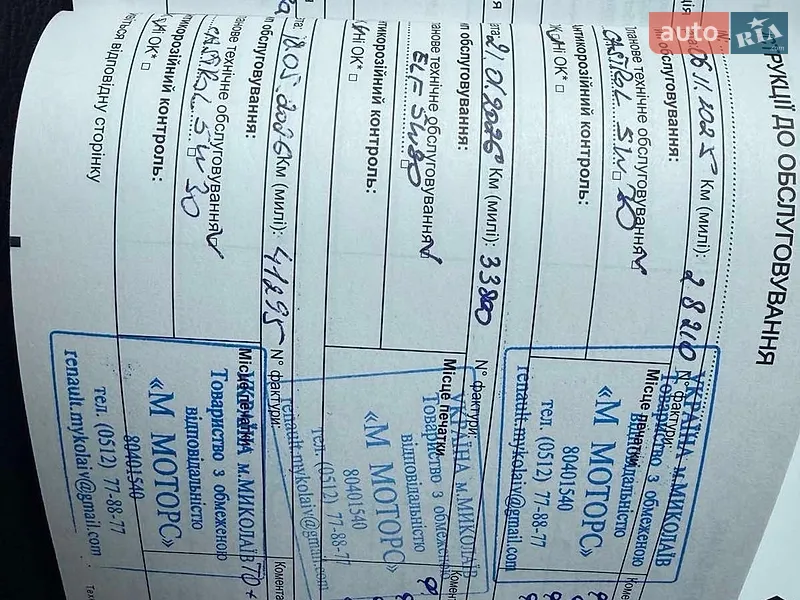 auto RIA.com
ІНСТРУКЦІЇ ДО ОБСЛУГОВУВАННЯ
06.11.2025 Км (милі): 28210 N° фактури:
обслуговування:
Планове технічне обслуговування
CASTROL 5W30
Антикорозійний контроль:
ОК*
Місце печатки
УКРАЇНА м.МИКОЛАЇВ
Товариство з обмеженою
відповідальністю
«М МОТОРС»
80401540
тел. (0512) 77-88-77
renault.mykolaiv@gmail.com
21.01.2026 Км (милі): 33800 N° фактури:
обслуговування:
Планове технічне обслуговування
ELF 5W30
Антикорозійний контроль:
ОК*
Місце печатки
УКРАЇНА м.МИКОЛАЇВ
Товариство з обмеженою
відповідальністю
«М МОТОРС»
80401540
тел. (0512) 77-88-77
renault.mykolaiv@gmail.com
18.05.2026 Км (милі): 41295 N° фактури:
обслуговування:
Планове технічне обслуговування
CASTROL 5W30
Антикорозійний контроль:
ОК*
відповідну сторінку
Місце печатки
м.МИКОЛАЇВ
Товариство з обмеженою
відповідальністю
«М МОТОРС»
80401540
тел. (0512) 77-88-77
renault.mykolaiv@gmail.com